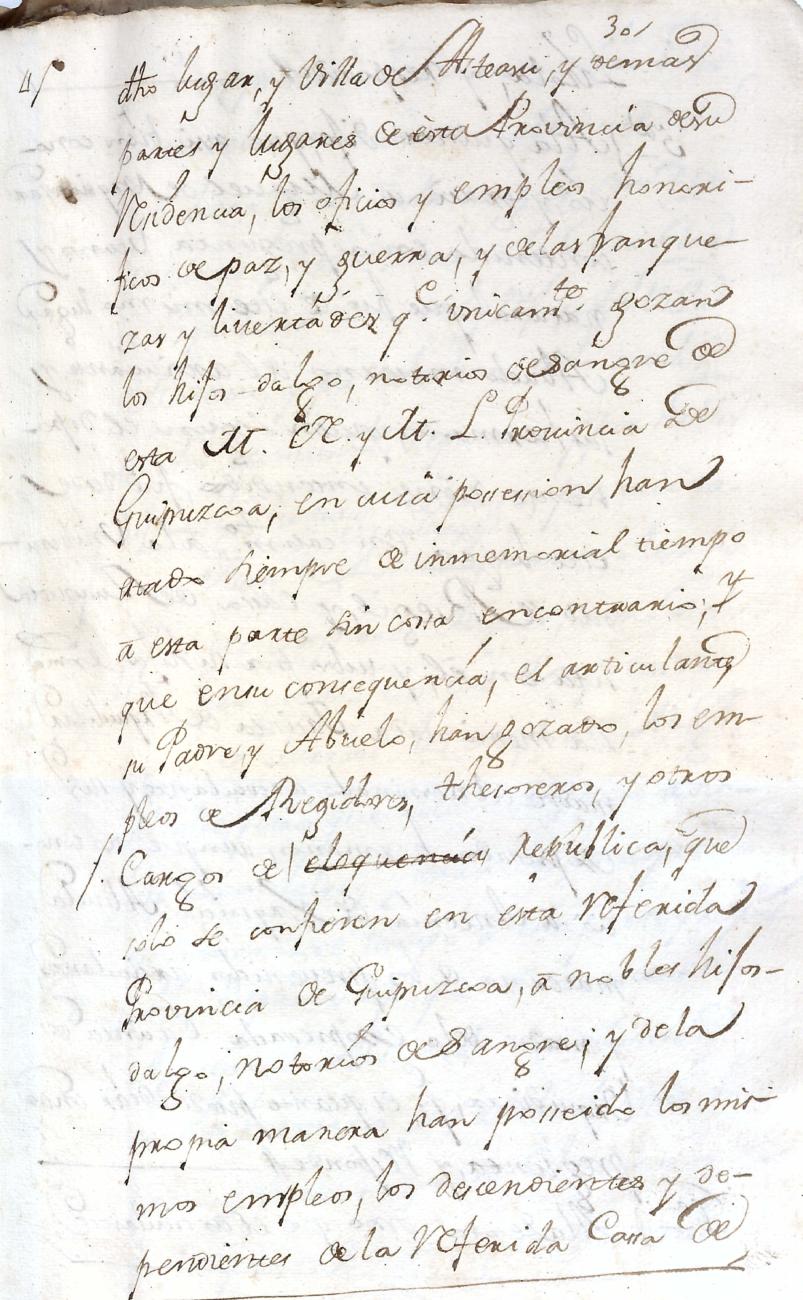 30
4/
dho lugar, y Villa de Ateavi, y demas
partes y lugares de esta Provincia de su
Residencia, los oficios y empleos honori-
ficos de paz, y guerra, y de las franque-
zas y livertades q.e unicam.te gozan
los hijos-dalgo, notorios de sangre de
esta M. N. y M. L. Provincia de
Guipuzcoa, en cuia possession han
estado siempre de inmemorial tiempo
a esta parte sin cossa en contrario; y
que en su consequencia, el articulante
su Padre, y Abuelo, han gozado, los em-
pleos de Regidores, thesoreros, y otros
/. Cargos de eloquencia republica, que
solo se confieren en esta referida
Provincia de Guipuzcoa, a nobles hijos-
dalgo, notorios de sangre; y de la
propia manera han posseido los mis-
mos empleos, los descendientes y de-
pendientes de la referida Cassa de